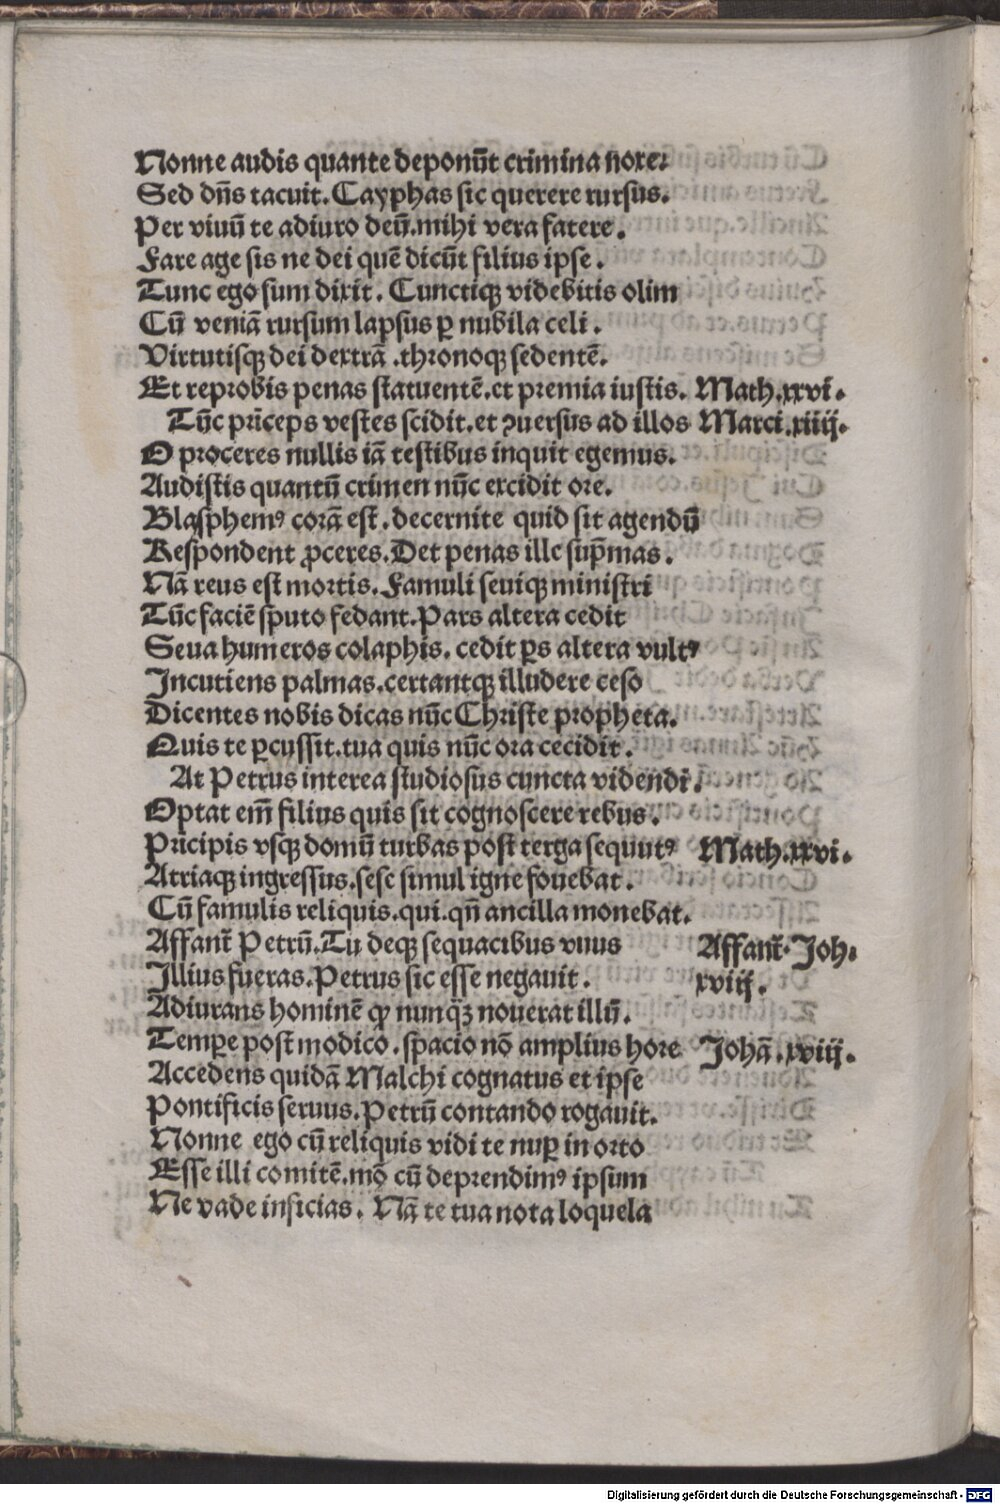 Nonne audis quante deponūt crimina noxe:
Sed dn̄s tacuit. Cayphas sic querere rursus.
Per viuū te adiuro deū. mihi vera fatere.
Fare age sis ne dei quē dicūt filius ipse.
Tunc ego sum dixit. Cunctiqꝫ videbitis olim
Cū veniā rursum lapsus ꝑ nubila celi.
Virtutisqꝫ dei dextrā. thronoqꝫ sedentē.
Et reprobis penas statuentē. et premia iustis. Math.xxvi.
Tūc prīceps vestes scidit. et ꝯuersus ad illos Marci.xiiij.
O proceres nullis iā testibus inquit egemus.
Audistis quantū crimen nūc excidit ore.
Blasphemꝰ corā est. decernite quid sit agendū
Respondent ꝓceres. Det penas ille sup̄mas.
Nā reus est mortis. Famuli seuiqꝫ ministri
Tūc faciē sputo fedant. Pars altera cedit
Seua humeros colaphis. cedit ꝑs altera vultꝰ
Incutiens palmas. certantqꝫ illudere ceso
Dicentes nobis dicas nūc Christe propheta.
Quis te ꝑcussit. tua quis nūc ora cecidit.
At Petrus interea studiosus cuncta videndi.
Optat em̄ filius quis sit cognoscere rebus.
Prīcipis vsqꝫ domū turbas post terga sequutꝰ Math.xxvi.
Atriaqꝫ ingressus. sese simul igne fouebat.
Cū famulis reliquis. qui. qn̄ ancilla monebat.
Affant̄ Petrū. Tu deqꝫ sequacibus vnus Affant̄. Joh.
Illius fueras. Petrus sic esse negauit. xviij.
Adiurans hominē ꝙ nunq̄ꝫ nouerat illū.
Temꝑe post modico. spacio nō amplius hore Johā.xviij.
Accedens quidā Malchi cognatus et ipse
Pontificis seruus. Petrū contando rogauit.
Nonne ego cū reliquis vidi te nuꝑ in orto
Esse illi comitē. mō cū deprendimꝰ ipsum
Ne vade inficias. Nā te tua nota loquela
Digitalisierung gefördert durch die Deutsche Forschungsgemeinschaft - DFG